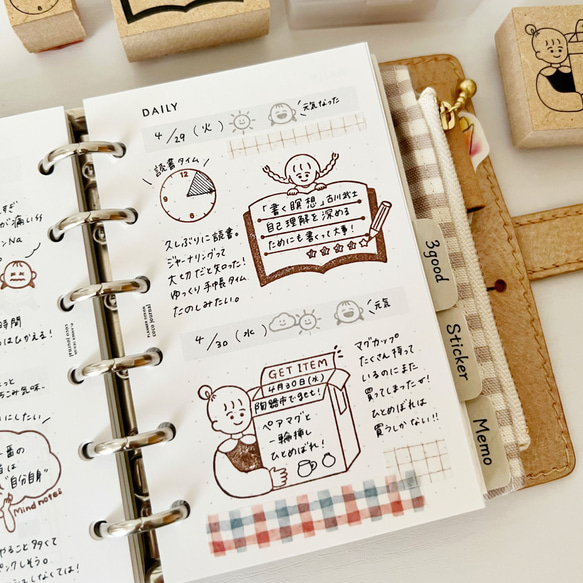 DAILY
4/29 (火)
元気なった
読書タイム
12
3
6
9
「書く瞑想」古川武士
自己理解を深める
ためにも書くって大事!
久しぶりに読書。
ジャーナリングって
大切だと知った!
ゆっくり手帳タイム
たのしみたい。
4/30 (水)
元気
GET ITEM
4月30日(水)
陶器市でget!
ペアマグと
一輪挿し
ひとめぼれ!
マグカップ
たくさん持って
いるのにまた
買ってしまったが!
ひとめぼれは
買うしかない!!
3good
Sticker
Memo
が痛い
時間
はひかえる!
にしたい
番の
"自分自身"
Mind notes
やること多くて
しなくては!